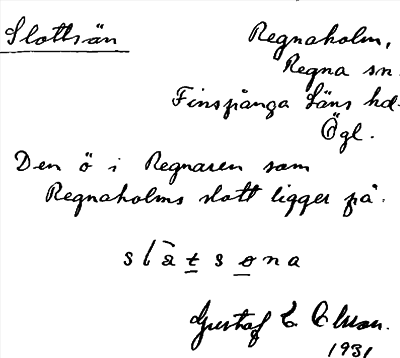 Slottsön
Regnaholm,
Regna sn.
Finspånga läns hd.
Ögl.
Den ö i Regnaren som
Regnaholms slott ligger på.
slåtsøna
Gustaf E Olsson.
1931